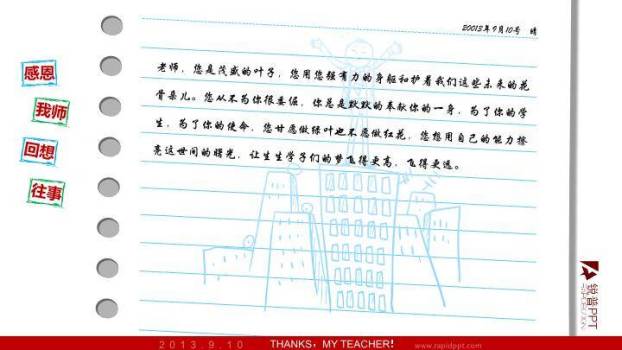 20013年9月10号 晴
感恩
我师
回想
往事
老师，您是茂盛的叶子，您用您强有力的身躯和护着我们这些未来的花
骨朵儿。您从不为你很委倔，你总是默默的奉献你的一身，为了你的学
生，为了你的使命，您甘愿做绿叶也不愿做红花，您想用自己的能力擦
亮这世间的曙光，让生生学子们的梦飞得更高，飞得更远。
锐普PPT
2013.9.10
THANKS，MY TEACHER!
www.rapidppt.com